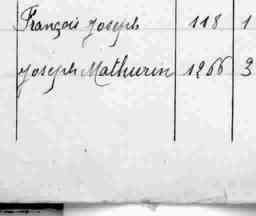 François Joseph 118 1
Joseph Mathurin 1266 3